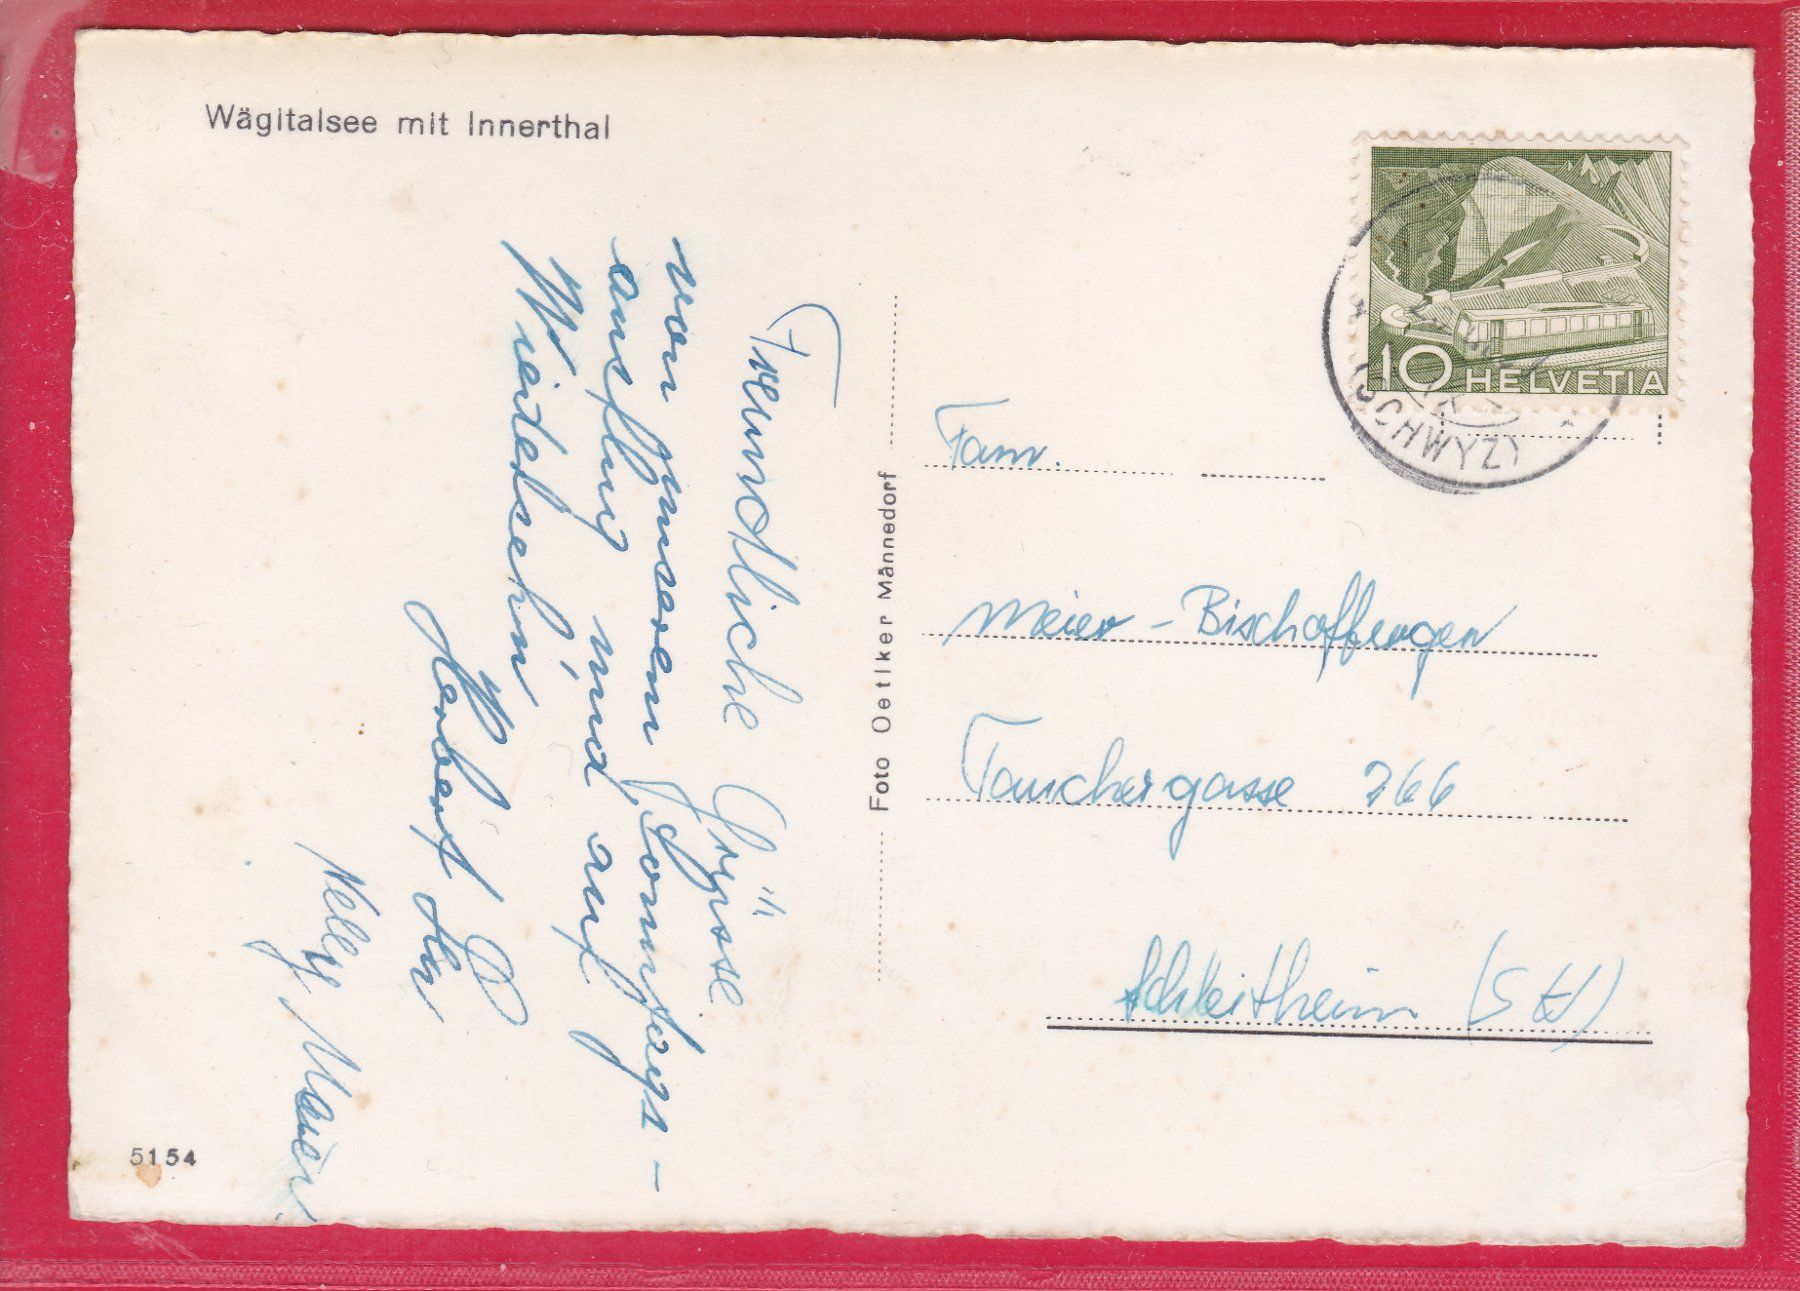 Wägitalsee mit Innerthal
Freundliche Grüsse
von unserem Sonntags-
ausflug und auf
Wiedersehn
Herbert
Nelly Maier
Foto Oetiker Männedorf
5154
10 HELVETIA
(SCHWYZ)
Fam.
Meier - Bischoffbergen
Tauchergasse 266
Schleitheim (SH)